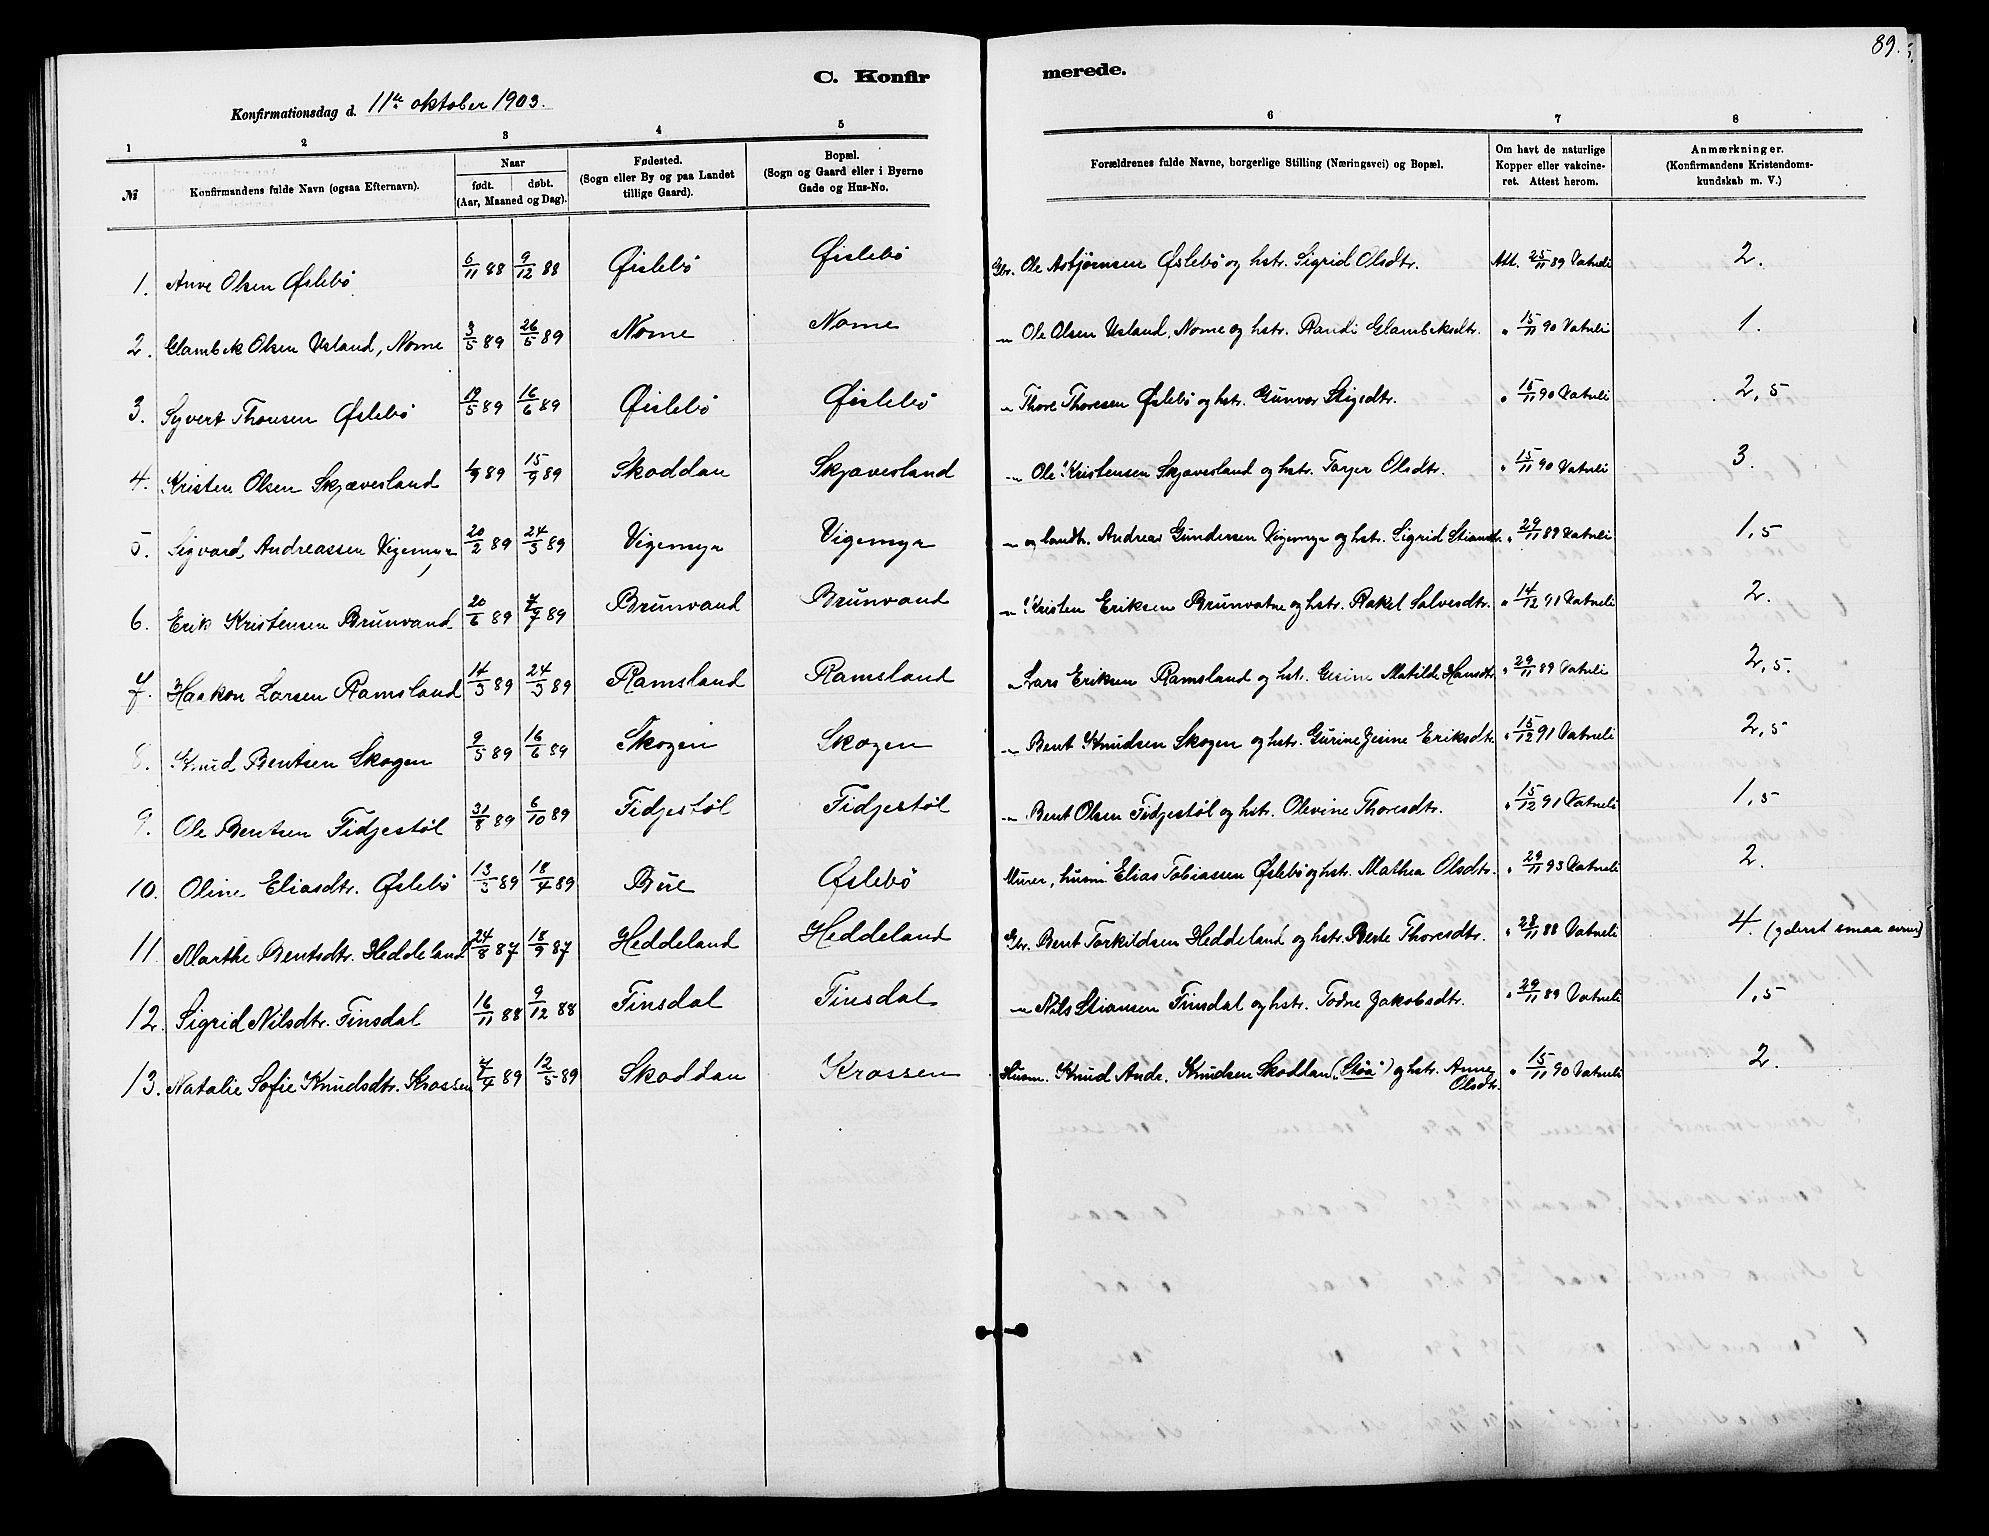 89.
C. Konfirmerede.
Konfirmationsdag d. 11te oktober 1903.
1 2 3 4 5 6 7 8
№ Konfirmandens fulde Navn (ogsaa Efternavn). Naar født. døbt. (Aar, Maaned og Dag). Fødested. (Sogn eller By og paa Landet tillige Gaard). Bopæl. (Sogn og Gaard eller i Byerne Gade og Hus-No. Forældrenes fulde Navne, borgerlige Stilling (Næringsvei) og Bopæl. Om havt de naturlige Kopper eller vakcineret. Attest herom. Anmærkninger. (Konfirmandens Kristendomskundskab m. V.)
1. Anve Olsen Øslebø 6/11 88 9/12 88 Øislebø Øislebø Gbr. Ole Asbjørnsen Øslebø og hstr. Sigrid Olsdtr. Att. 25/11 89 Vatneli 2.
2. Glambek Olsen Usland, Nome 3/5 89 26/5 89 Nome Nome " Ole Olsen Usland, Nome og hstr. Randi Glambeksdtr. " 15/11 90 Vatneli 1.
3. Syvert Thorsen Øslebø 19/5 89 16/6 89 Øislebø Øislebø " Thore Thoresen Øslebø og hstr. Gunvor Stigsdtr. " 15/11 90 Vatneli 2,5
4. Kristen Olsen Skjævesland 1/9 89 15/9 89 Skoddan Skjævesland " Ole Kristensen Skjævesland og hstr. Torjer Olsdtr. " 15/11 90 Vatneli 3.
5. Sigvard Andreassen Vigemyr 20/2 89 24/3 89 Vigemyr Vigemyr " og landh. Andreas Gundersen Vigemyr og hstr. Sigrid Stiansdtr. " 29/11 89 Vatneli 1,5
6. Erik Kristensen Brunvand 20/6 89 7/7 89 Brunvand Brunvand " Kristen Eriksen Brunvatne og hstr. Rakel Salvesdtr. " 14/12 91 Vatneli 2.
7. Haakon Larsen Ramsland 14/3 89 24/3 89 Ramsland Ramsland " Lars Eriksen Ramsland og hstr. Gesine Matilde Hansdtr. " 29/11 89 Vatneli 2,5.
8. Knud Bentsen Skogen 9/5 89 16/6 89 Skogen Skogen " Bent Knudsen Skogen og hstr. Gurine Jesine Eriksdtr. " 15/12 91 Vatneli 2,5
9. Ole Bentsen Fidjestøl 31/8 89 6/10 89 Fidjestøl Fidjestøl " Bent Olsen Fidjestøl og hstr. Olevine Thoresdtr. " 15/12 91 Vatneli 1,5
10. Oline Eliasdtr. Øslebø 13/3 89 18/4 89 Bue Øslebø Murer, husm. Elias Tobiassen Øslebø og hstr. Mathea Olsdtr. " 29/11 93 Vatneli 2.
11. Marthe Bentsdtr. Heddeland 24/8 87 18/9 87 Heddeland Heddeland Gbr. Bent Torkildsen Heddeland og hstr. Berte Thoresdtr. " 28/11 88 Vatneli 4. (yderst smaa evner)
12. Sigrid Nilsdtr. Finsdal 16/11 88 9/12 88 Finsdal Finsdal " Nils Stiansen Finsdal og hstr. Todne Jakobsdtr. " 29/11 89 Vatneli 1,5
13. Natalie Sofie Knudsdtr. Krossen 7/4 89 12/5 89 Skoddan Krossen Husm. Knud Andr. Knudsen Skoddan („Støa") og hstr. Anne Olsdtr. " 15/11 90 Vatneli 2.